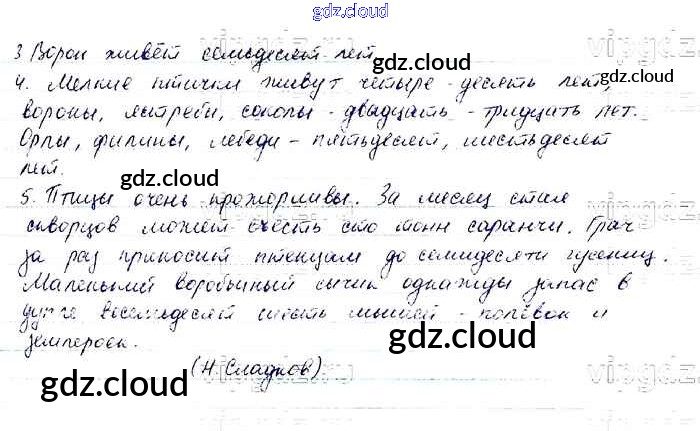 gdz.cloud
3 Ворон живёт семьдесят лет
gdz.cloud
4. Мелкие птички живут четыре - десять лет,
вороны, ястребы, соколы - двадцать - тридцать лет.
Орлы, филины, лебеди - пятьдесят, шестьдесят
лет.
gdz.cloud
vipgdz
5. Птицы очень прожорливы. За месяц стая
скворцов может съесть сто тонн саранчи. Грач
за раз приносит птенцам до семидесяти гусениц.
Маленький воробьиный сычик однажды запас в
дупле восемьдесят шесть мышей - полёвок и
землероек.
gdz.cloud
gdz.cloud
(Н. Сладков)
gdz.cloud
vipgdz